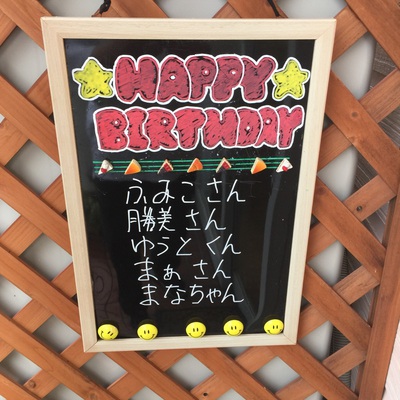 HAPPY
BIRTHDAY
ふみこさん
勝美さん
ゆうとくん
まぁさん
まなちゃん